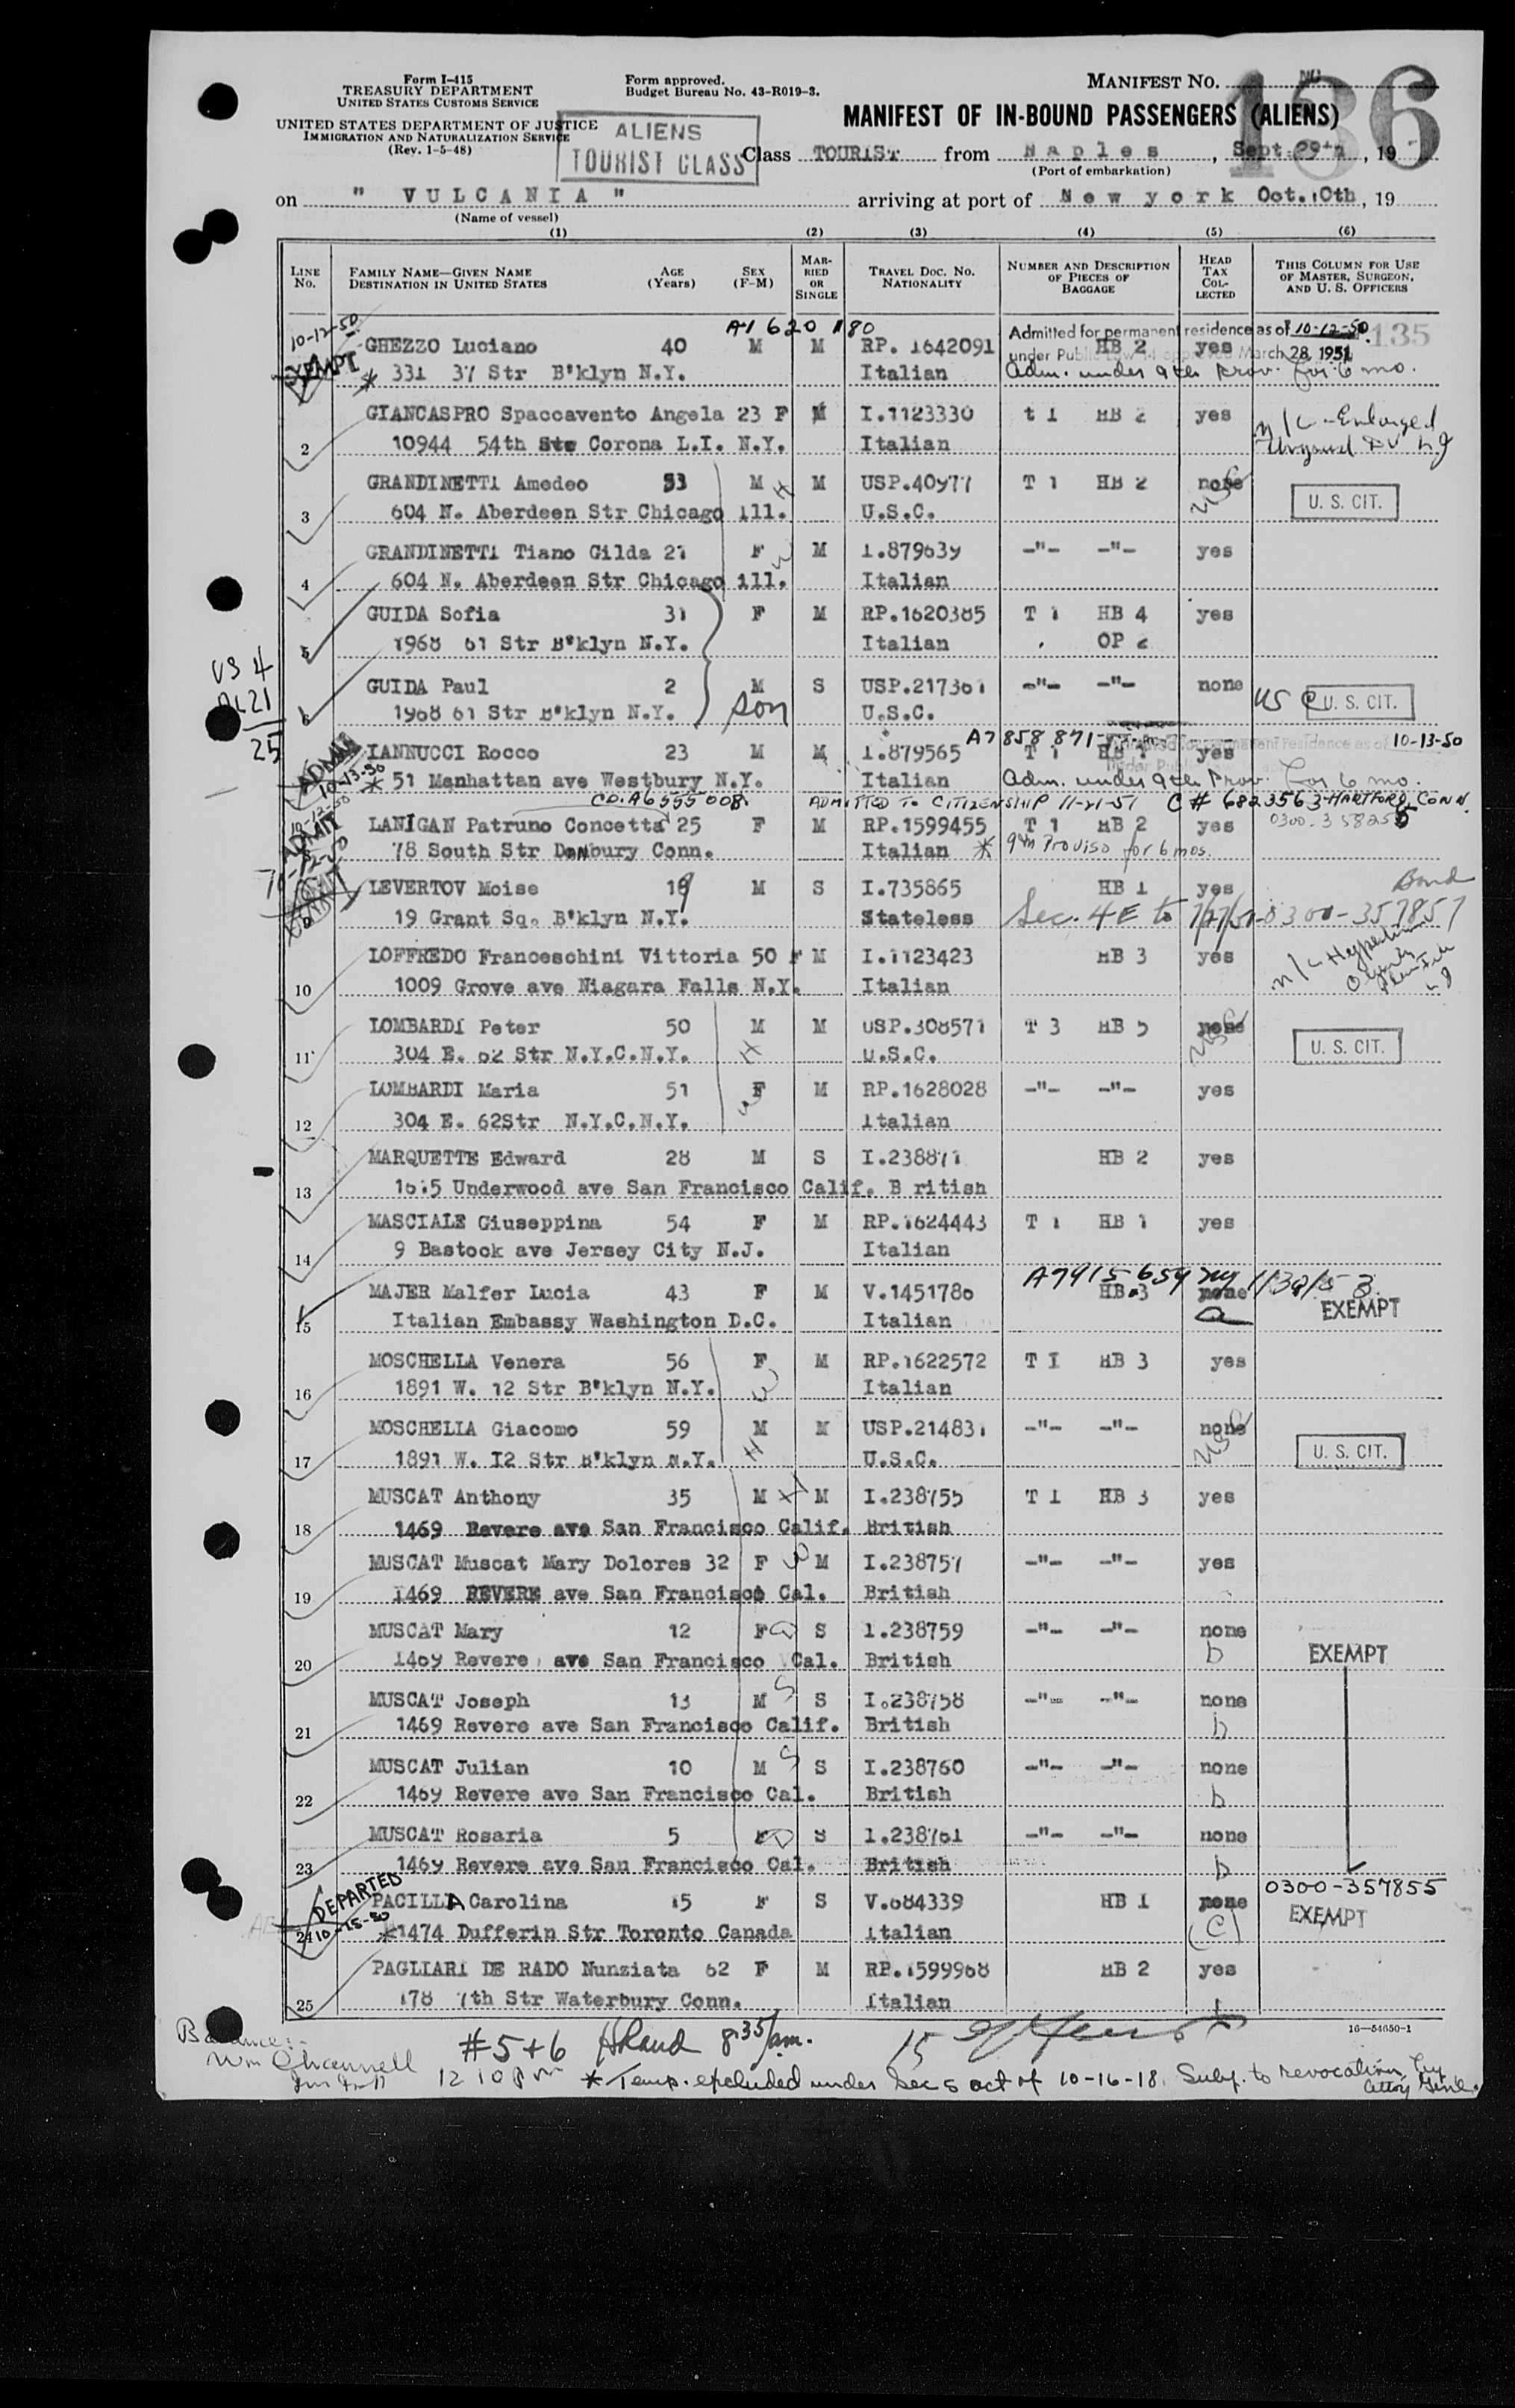 Form I-415
TREASURY DEPARTMENT
UNITED STATES CUSTOMS SERVICE
UNITED STATES DEPARTMENT OF JUSTICE
IMMIGRATION AND NATURALIZATION SERVICE
(Rev. 1-5-48)
Form approved.
Budget Bureau No. 43-R019-3.
ALIENS
TOURIST CLASS
MANIFEST NO.
136
MANIFEST OF IN-BOUND PASSENGERS (ALIENS)
Class TOURIST from Naples, Sept 29th, 19
(Port of embarkation)
on " VULCANIA " arriving at port of New york Oct. 10th, 19
(Name of vessel)
(1) (2) (3) (4) (5) (6)
LINE No. FAMILY NAME—GIVEN NAME DESTINATION IN UNITED STATES AGE (Years) SEX (F-M) MARRIED OR SINGLE TRAVEL DOC. No. NATIONALITY NUMBER AND DESCRIPTION OF PIECES OF BAGGAGE HEAD TAX COLLECTED THIS COLUMN FOR USE OF MASTER, SURGEON, AND U. S. OFFICERS
10-12-50 A1 620 180 Admitted for permanent residence as of 10-12-50. 135
EXEMPT GHEZZO Luciano 40 M M RP. 1642091 HB 2 yes
under Public Law 14 approved March 28, 1951
* 331 37 Str B'klyn N.Y. Italian Adm. under 9th Prov. for 6 mo.
GIANCASPRO Spaccavento Angela 23 F M I.1123330 t 1 HB 2 yes n/c - Enlarged
2 10944 54th Ste Corona L.I. N.Y. Italian
GRANDINETTI Amedeo 53 M H M USP.40977 T 1 HB 2 none USC
3 604 N. Aberdeen Str Chicago ill. U.S.C. U. S. CIT.
GRANDINETTI Tiano Gilda 27 F W M I.879639 -"- -"- yes
4 604 N. Aberdeen Str Chicago ill. Italian
GUIDA Sofia 31 F M RP.1620385 T 1 HB 4 yes
5 1968 61 Str B'klyn N.Y. Italian OP 2
US 4
AL 21
25
GUIDA Paul 2 M S USP.217361 -"- -"- none USC U. S. CIT.
6 1968 61 Str B'klyn N.Y. Son U.S.C.
A7 858 871 10-13-50
ADMIT IANNUCCI Rocco 23 M M I.879565 T 1 HB 1 yes
10-13-50 * 51 Manhattan ave Westbury N.Y. Italian Adm. under 9th Prov. for 6 mo.
CO. A6555008. ADMITTED TO CITIZENSHIP 11-21-51 C# 6823563-HARTFORD, CONN.
10-12-50 ADMIT LANIGAN Patruno Concetta 25 F M RP.1599455 T 1 HB 2 yes 0300-358255
78 South Str Danbury Conn. Italian * 9th Proviso for 6 mos.
LEVERTOV Moise 19 M S I.735865 HB 1 yes Bond
19 Grant Sq. B'klyn N.Y. Stateless Sec. 4E to 0300-357857
LOFFREDO Franceschini Vittoria 50 F M I.1123423 HB 3 yes
10 1009 Grove ave Niagara Falls N.Y. Italian
LOMBARDI Peter 50 M H M USP.308571 T 3 HB 5 none USC
11 304 E. 62 Str N.Y.C.N.Y. U.S.C. U. S. CIT.
LOMBARDI Maria 51 F W M RP.1628028 -"- -"- yes
12 304 E. 62Str N.Y.C.N.Y. Italian
MARQUETTE Edward 28 M S I.238871 HB 2 yes
13 1615 Underwood ave San Francisco Calif. British
MASCIALE Giuseppina 54 F M RP.1624443 T 1 HB 1 yes
14 9 Bastock ave Jersey City N.J. Italian
A7915659 ny 1/30/53
MAJER Malfer Lucia 43 F M V.1451780 HB.3 none
15 Italian Embassy Washington D.C. Italian a EXEMPT
MOSCHELLA Venera 56 F W M RP.1622572 T I HB 3 yes
16 1891 W. 12 Str B'klyn N.Y. Italian
MOSCHELLA Giacomo 59 M H M USP.214831 -"- -"- none USC
17 1891 W. I2 Str B'klyn N.Y. U.S.C. U. S. CIT.
MUSCAT Anthony 35 M H M I.238755 T 1 HB 3 yes
18 1469 Revere ave San Francisco Calif. British
MUSCAT Muscat Mary Dolores 32 F W M I.238757 -"- -"- yes
19 1469 REVERE ave San Francisco Cal. British
MUSCAT Mary 12 F D S I.238759 -"- -"- none
20 1469 Revere ave San Francisco Cal. British b EXEMPT
MUSCAT Joseph 13 M S S I.238758 -"- -"- none
21 1469 Revere ave San Francisco Calif. British b
MUSCAT Julian 10 M S S I.238760 -"- -"- none
22 1469 Revere ave San Francisco Cal. British b
MUSCAT Rosaria 5 F D S I.238761 -"- -"- none
23 1469 Revere ave San Francisco Cal. British b
DEPARTED PACILLA Carolina 15 F S V.684339 HB 1 none 0300-357855
24 10-15-50 *1474 Dufferin Str Toronto Canada Italian (C) EXEMPT
PAGLIARI DE RADO Nunziata 62 F M RP.1599968 HB 2 yes
25 178 7th Str Waterbury Conn. Italian
16—54650-1
#5+6 8:35/am. 15
12 10 pm * Temp. excluded under Sec 5 act of 10-16-18. Subj. to revocation by Atty Genl.